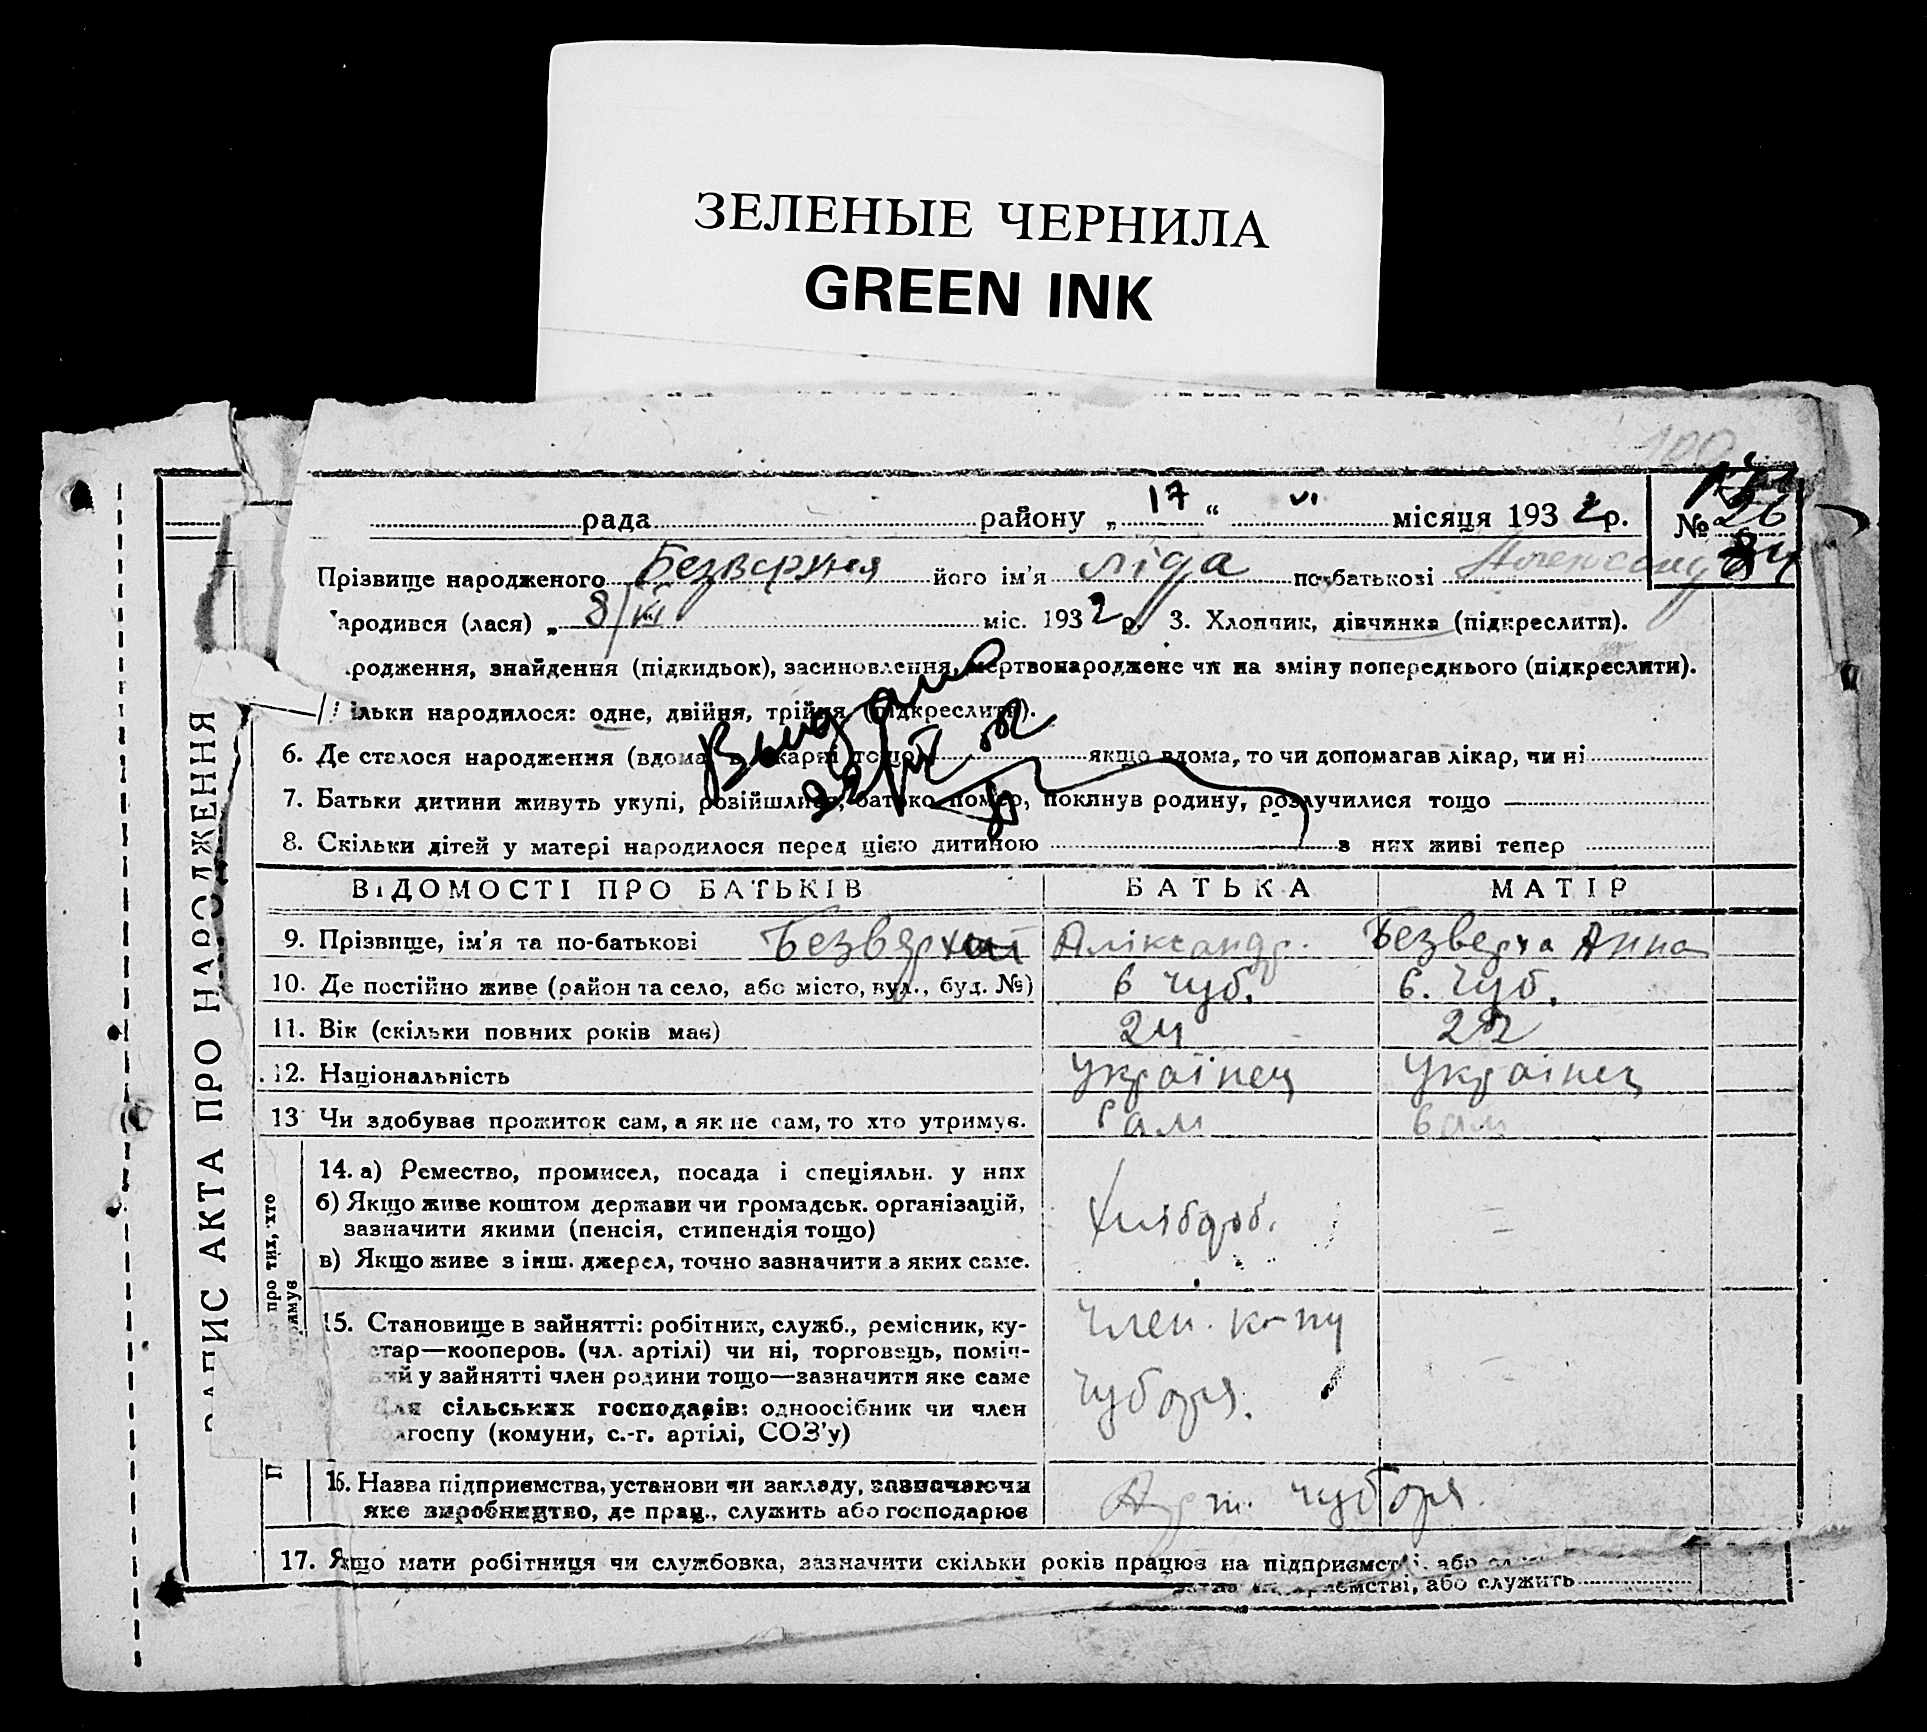 ЗЕЛЕНЫЕ ЧЕРНИЛА
GREEN INK
100
рада района району „ 17 “ VI місяця 1932 р. № 26
Прізвище народженого Безверхня його ім'я Ліда по-батькові Александ
ародився (лася) „ 8/III міс. 1932 р. 3. Хлопчик, дівчинка (підкреслити).
родження, знайдення (підкидьок), засиновлення, мертвонароджене чи на зміну попереднього (підкреслити).
ільки народилося: одне, двійня, трійня (підкреслити).
Выдано
6. Де сталося народження (вдома, в лікарні тощо) якщо вдома, то чи допомагав лікар, чи ні
7. Батьки дитини живуть укупі, розійшлися, батько помер, покинув родину, розлучилися тощо
8. Скільки дітей у матері народилося перед цією дитиною з них живі тепер
ВІДОМОСТІ ПРО БАТЬКІВ БАТЬКА МАТІР
9. Прізвище, ім'я та по-батькові Безверхий Аліксандр. Безверха Анна
10. Де постійно живе (район та село, або місто, вул., буд. №) с Чуб. с. Чуб.
11. Вік (скільки повних років має) 24 22
12. Національність Українец Українец
13 Чи здобував прожиток сам, а як не сам, то хто утримує. Сам Сам
14. а) Ремество, промисел, посада і спеціяльн. у них
б) Якщо живе коштом держави чи громадськ. організацій,
зазначити якими (пенсія, стипендія тощо) Хлібороб. =
в) Якщо живе з інш. джерел, точно зазначити з яких саме.
15. Становище в зайнятті: робітник, служб., ремісник, ку-
стар—кооперов. (чл. артілі) чи ні, торговець, поміч-
ний у зайнятті член родини тощо—зазначити яке саме
Для сільських господарів: одноосібник чи член
лгоспу (комуни, с.-г. артілі, СОЗ'у)
Член. к-пу
Чуборя.
16. Назва підприємства, установи чи закладу, зазначаючи
яке виробництво, де прац., служить або господарює Арт. Чуборя.
17. Якщо мати робітниця чи службовка, зазначити скільки років працює на підприємстві, або
приємстві, або служить
ЗАПИС АКТА ПРО НАРОДЖЕННЯ
про тих, хто